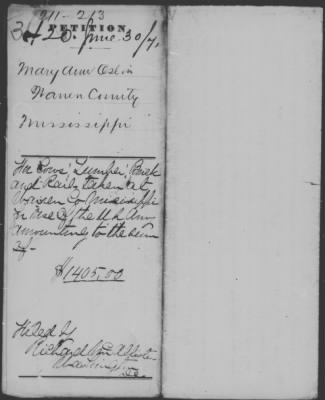 211-213
PETITION.
3420. June 30/71.
Mary Ann
Warren County
Mississippi
For Cows, Lumber,
and Rails taken at
Warren Co Mississippi
for use of the U.S. Army
amounting to the sum
of
$1405.00
Filed by
Richard
Washington